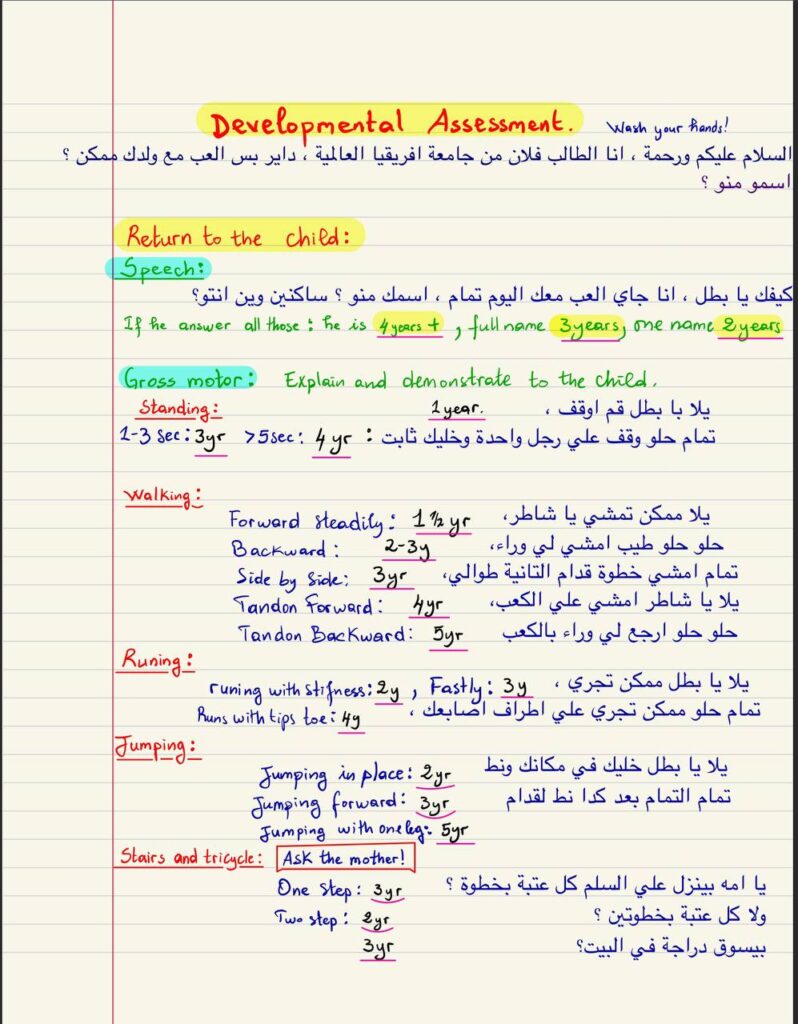 Developmental Assessment. Wash your hands!
السلام عليكم ورحمة ، انا الطالب فلان من جامعة افريقيا العالمية ، داير بس العب مع ولدك ممكن ؟
اسمو منو ؟
Return to the child:
Speech:
كيفك يا بطل ، انا جاي العب معك اليوم تمام ، اسمك منو ؟ ساكنين وين انتو؟
If he answer all those : he is 4years + , full name 3years, one name 2years
Gross motor: Explain and demonstrate to the child.
Standing: 1year. يلا با بطل قم اوقف ،
1-3 sec: 3yr >5sec: 4yr : تمام حلو وقف علي رجل واحدة وخليك ثابت
Walking:
Forward steadily: 1 1/2 yr يلا ممكن تمشي يا شاطر،
Backward : 2-3y حلو حلو طيب امشي لي وراء،
Side by Side: 3yr تمام امشي خطوة قدام التانية طوالي،
Tandon Forward: 4yr يلا يا شاطر امشي علي الكعب،
Tandon Backward: 5yr حلو حلو ارجع لي وراء بالكعب
Runing:
runing with stifness: 2y , Fastly: 3y يلا يا بطل ممكن تجري ،
Runs with tips toe: 4y تمام حلو ممكن تجري علي اطراف اصابعك ،
Jumping:
Jumping in place: 2yr يلا يا بطل خليك في مكانك ونط
Jumping forward: 3yr تمام التمام بعد كدا نط لقدام
Jumping with one leg: 5yr
Stairs and tricycle: Ask the mother!
One step: 3yr يا امه بينزل علي السلم كل عتبة بخطوة ؟
Two step: 2yr ولا كل عتبة بخطوتين ؟
3yr بيسوق دراجة في البيت؟